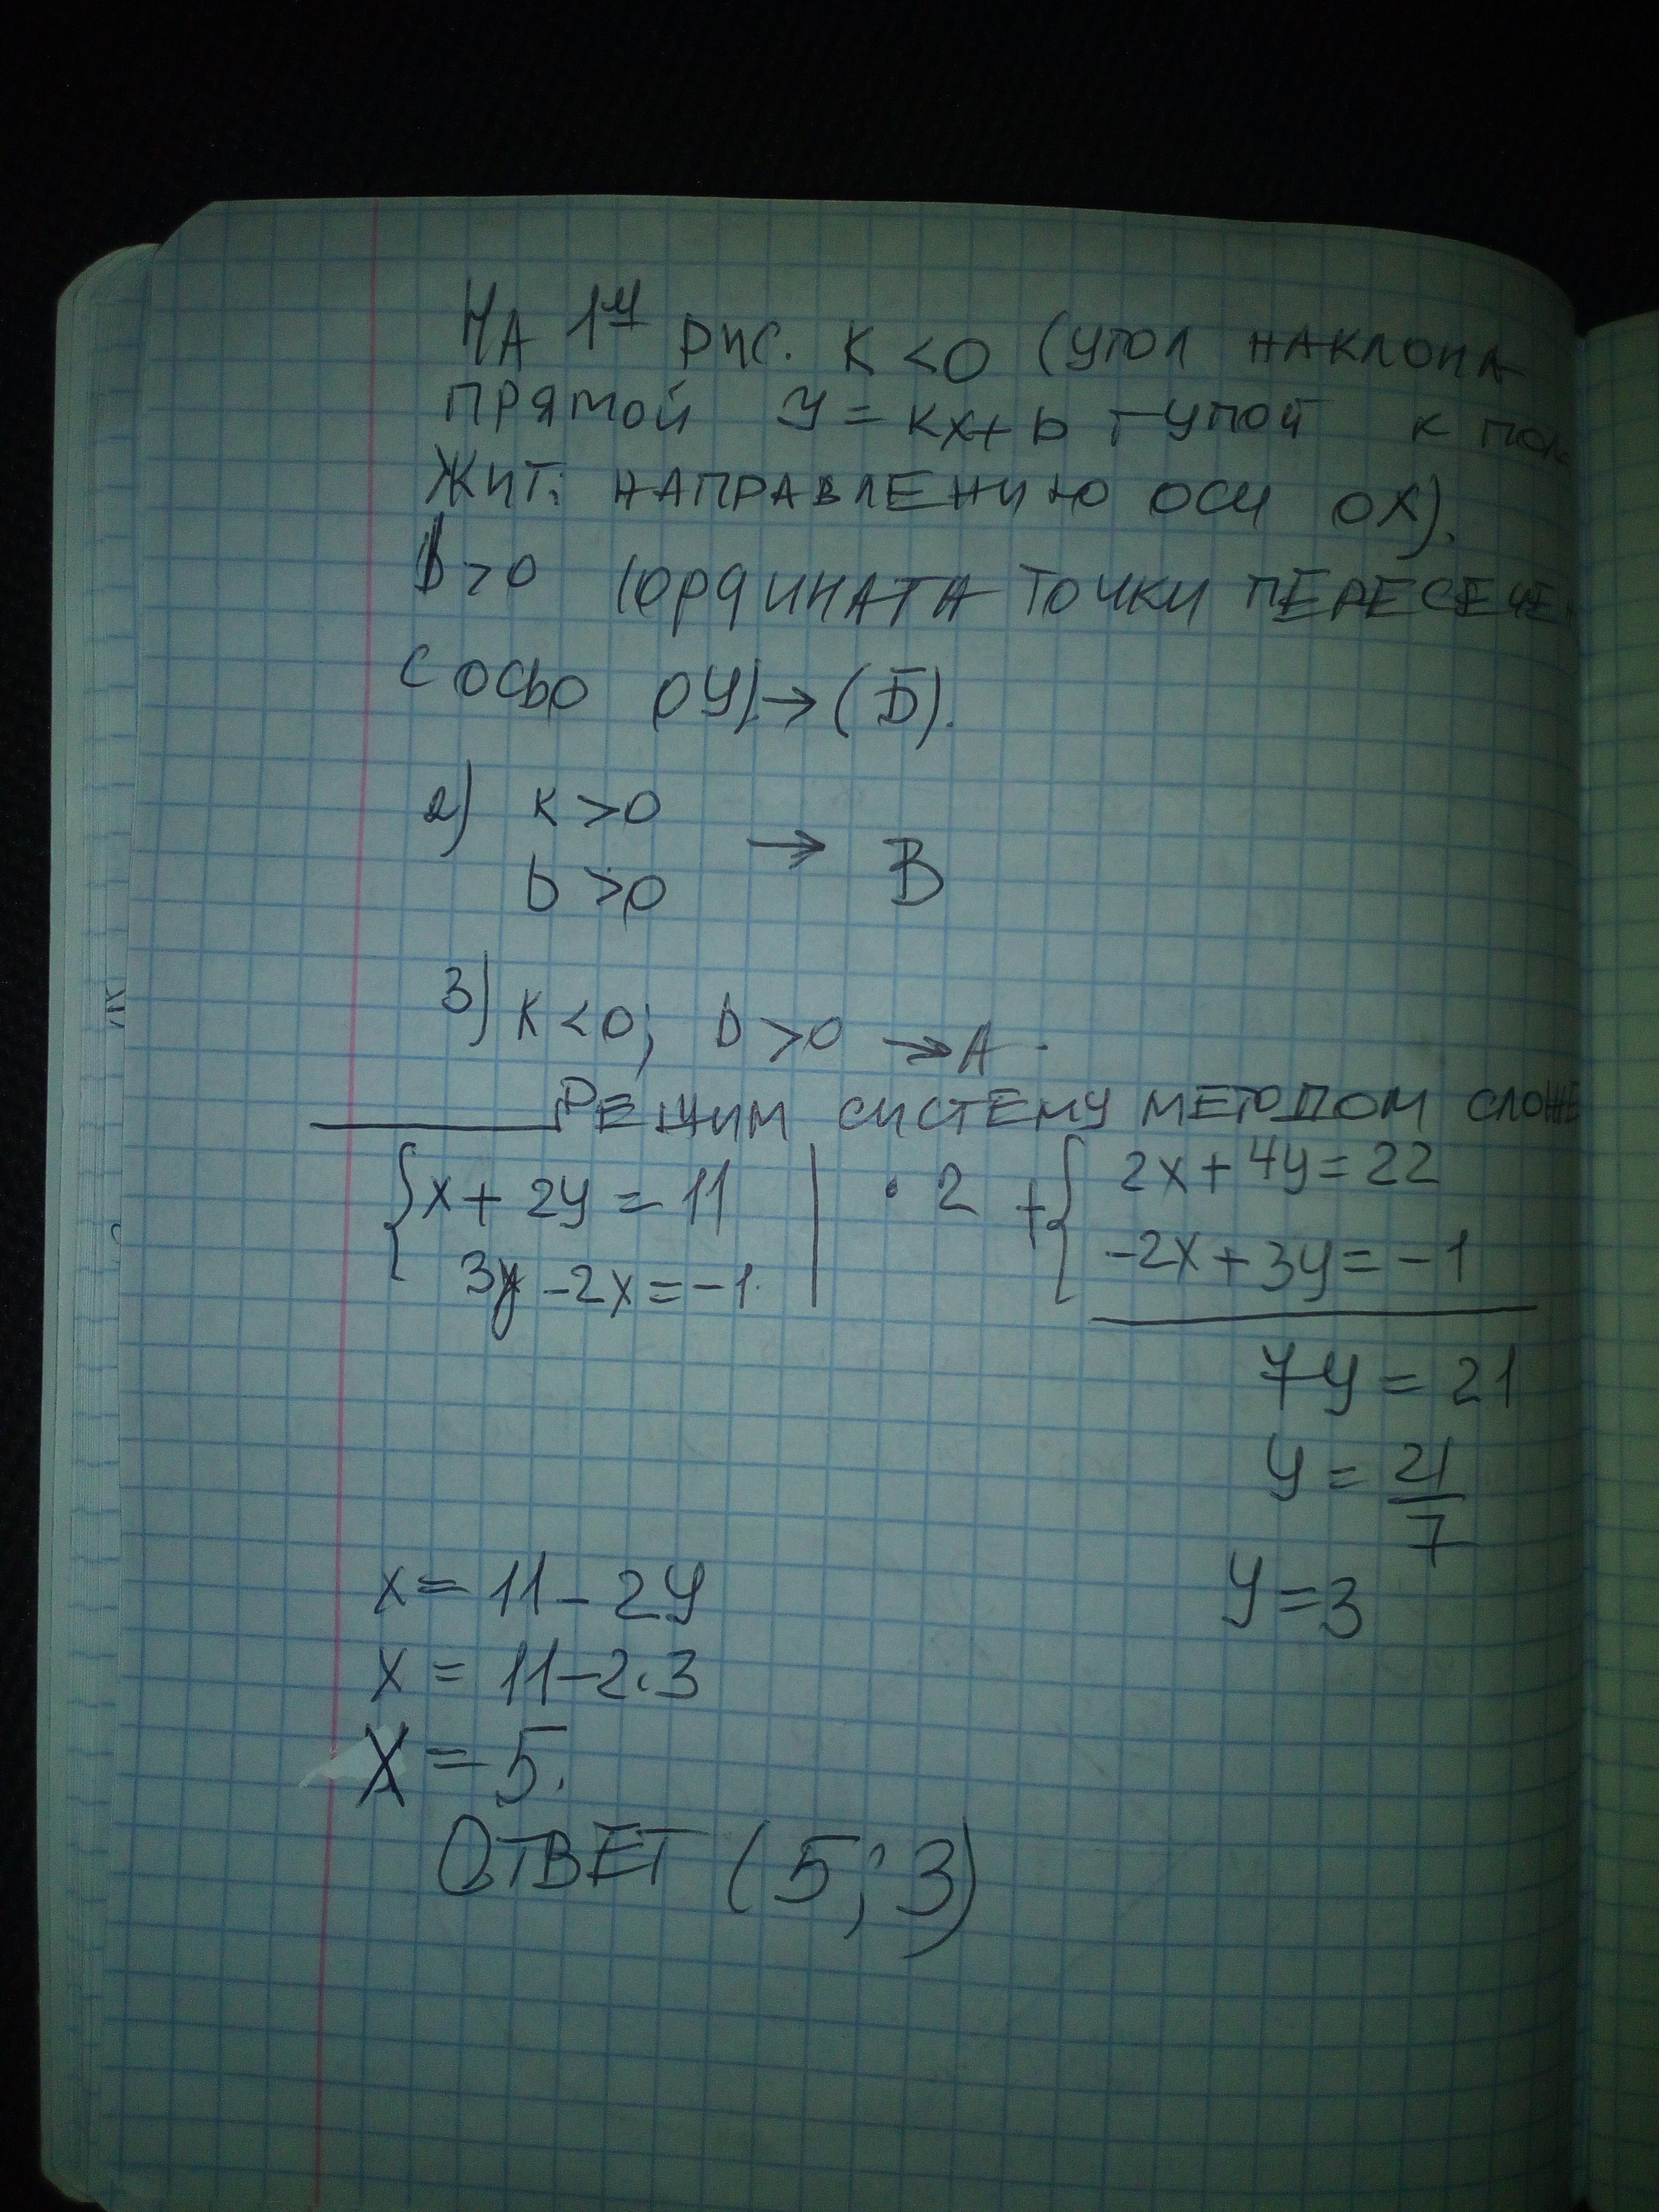 НА 1й РИС. К < 0 (УГОЛ НАКЛОНА
ПРЯМОЙ У = кх + b ТУПОЙ К ПОЛО
ЖИТ. НАПРАВЛЕНИЮ ОСИ ОХ).
b > 0 (ОРДИНАТА ТОЧКИ ПЕРЕСЕЧЕН
С ОСЬЮ ОУ) → (Б).
2) к > 0
b > 0 → В
3) к < 0; b > 0 → А.
РЕШИМ СИСТЕМУ МЕТОДОМ СЛОЖЕ
{ x + 2y = 11 | · 2 + { 2x + 4y = 22
3y - 2x = -1. -2x + 3y = -1
7y = 21
y = 21/7
x = 11 - 2y
y = 3
x = 11 - 2·3
X = 5.
ОТВЕТ (5; 3)